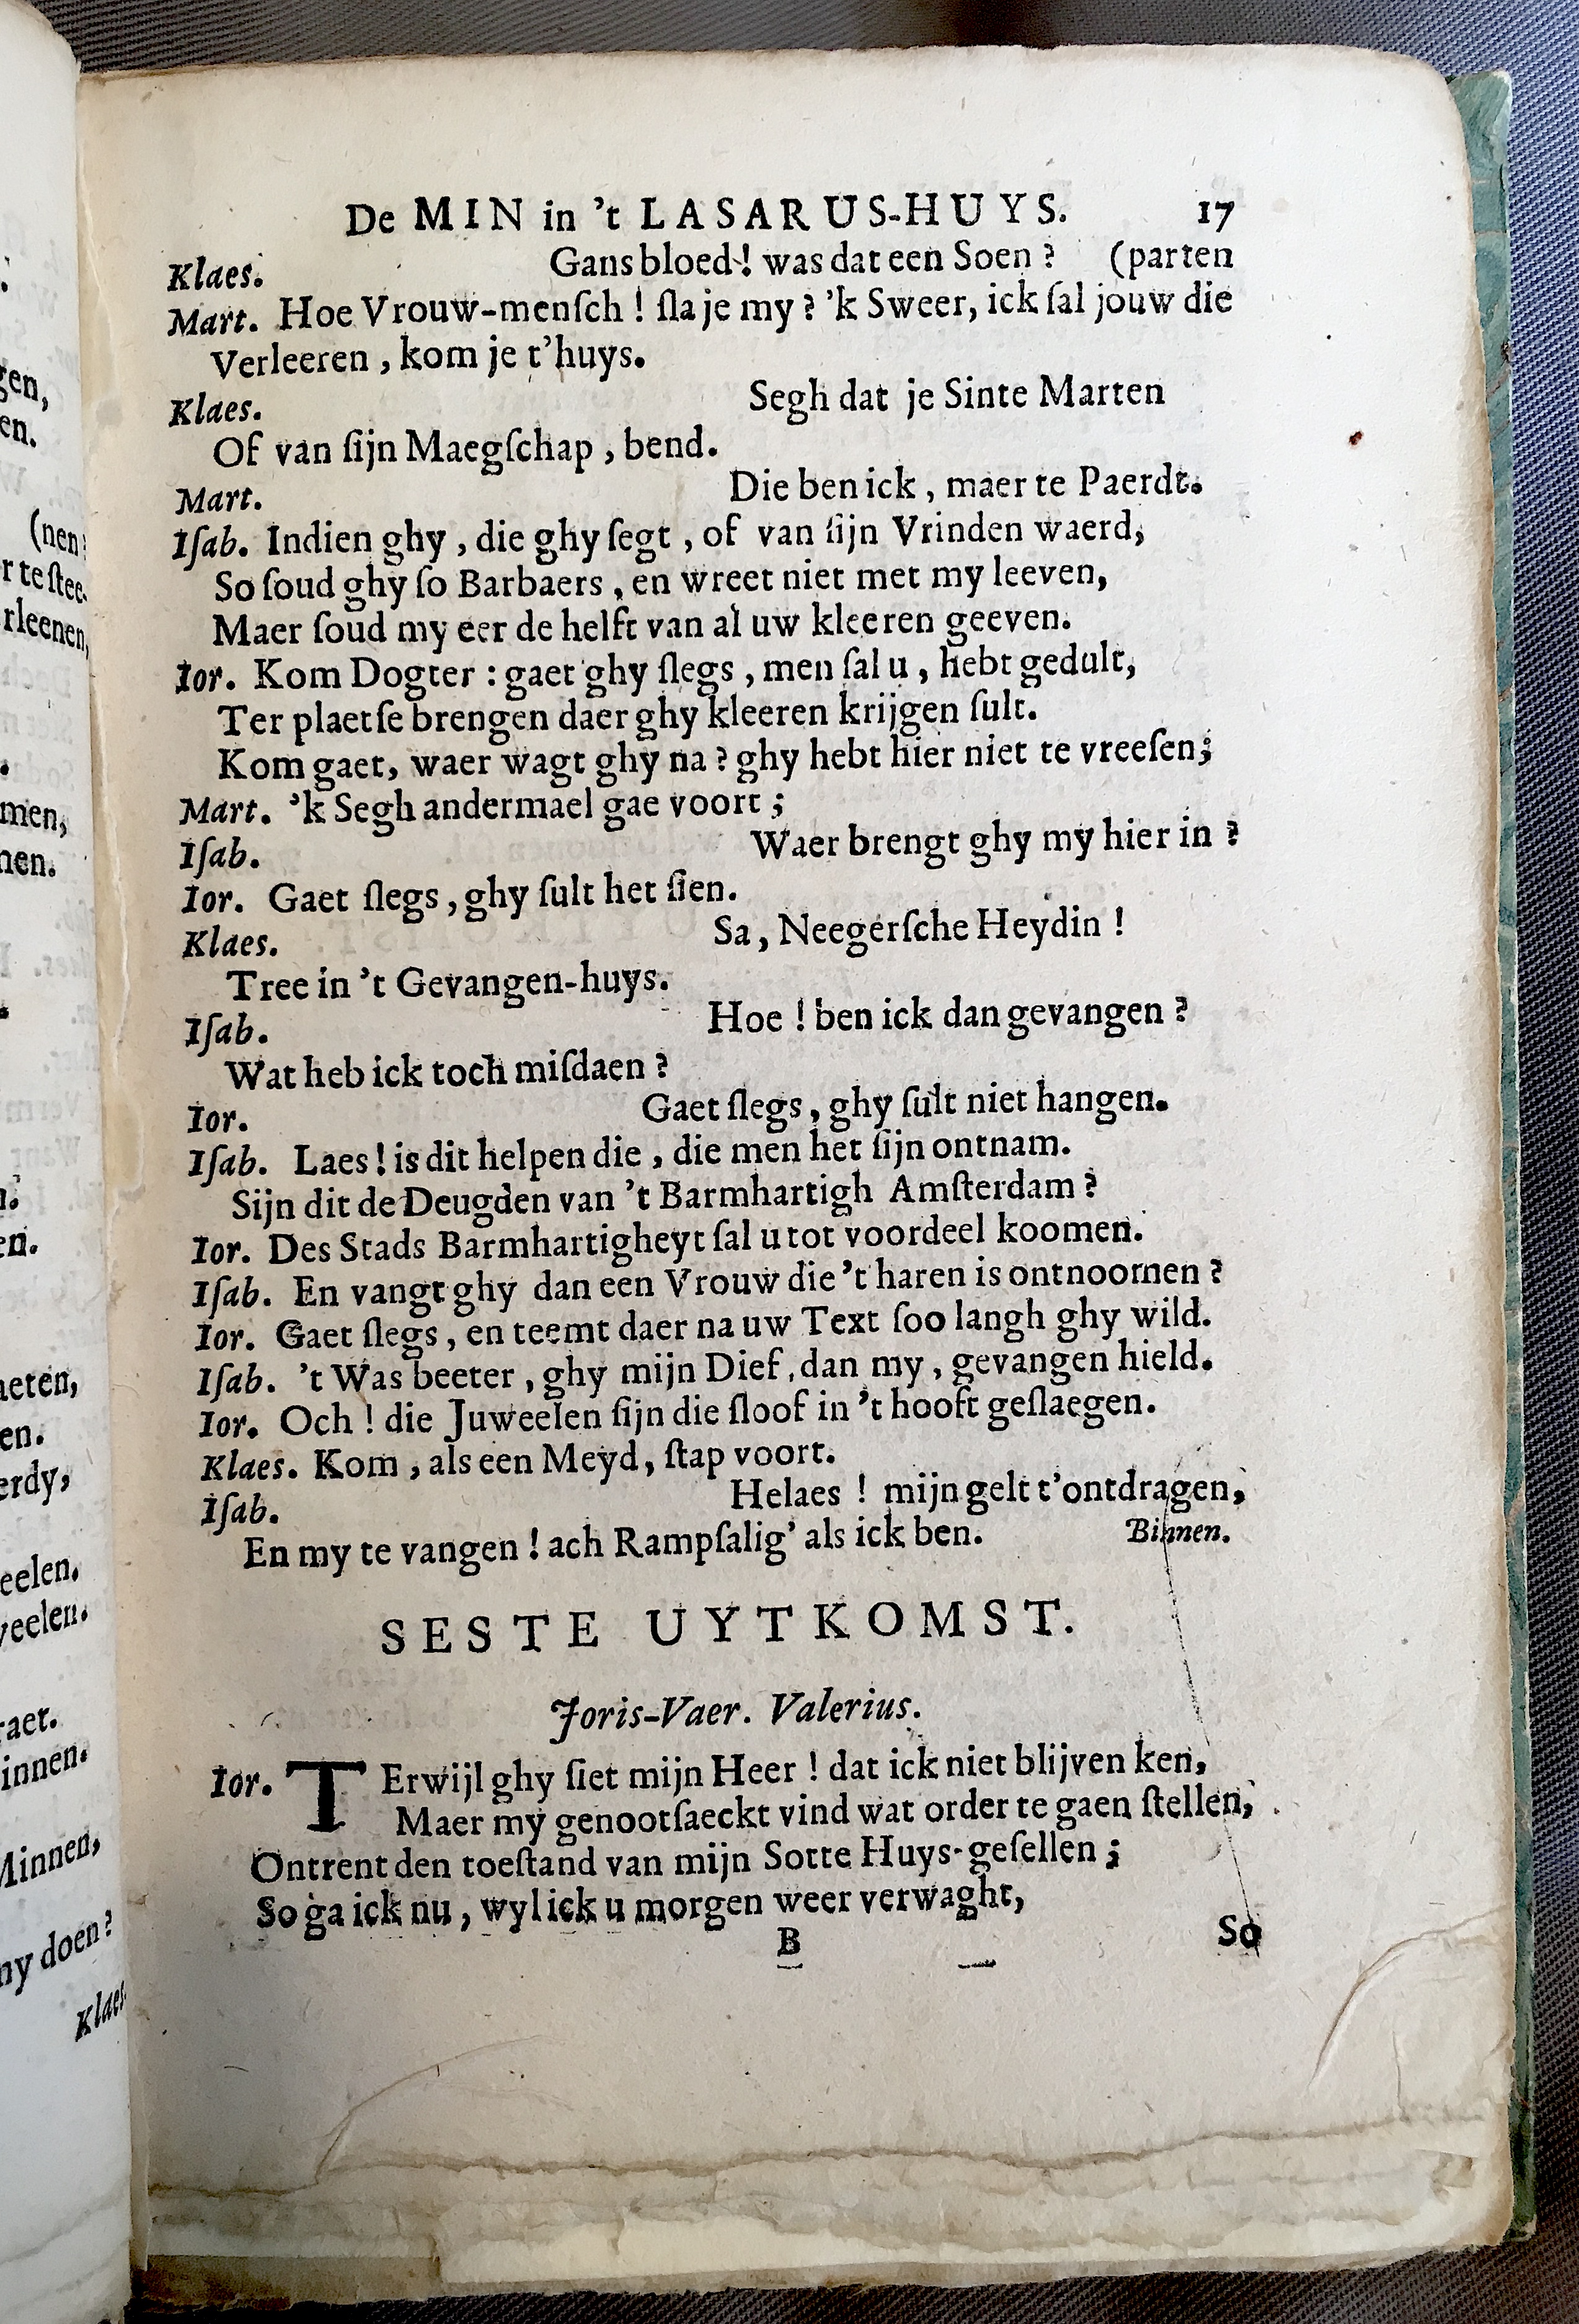 De MIN in 't LASARUS-HUYS. 17
Klaes. Gans bloed! was dat een Soen? (parten
Mart. Hoe Vrouw-menſch! ſla je my? 'k Sweer, ick ſal jouw die
Verleeren, kom je t'huys.
Klaes. Segh dat je Sinte Marten
Of van ſijn Maegſchap, bend.
Mart. Die ben ick, maer te Paerdt.
Iſab. Indien ghy, die ghy ſegt, of van ſijn Vrinden waerd,
So ſoud ghy ſo Barbaers, en wreet niet met my leeven,
Maer ſoud my eer de helft van al uw kleeren geeven.
Ior. Kom Dogter: gaet ghy ſlegs, men ſal u, hebt gedult,
Ter plaetſe brengen daer ghy kleeren krijgen ſult.
Kom gaet, waer wagt ghy na? ghy hebt hier niet te vreeſen;
Mart. 'k Segh andermael gae voort;
Iſab. Waer brengt ghy my hier in?
Ior. Gaet ſlegs, ghy ſult het ſien.
Klaes. Sa, Neegerſche Heydin!
Tree in 't Gevangen-huys.
Iſab. Hoe! ben ick dan gevangen?
Wat heb ick toch miſdaen?
Ior. Gaet ſlegs, ghy ſult niet hangen.
Iſab. Laes! is dit helpen die, die men het ſijn ontnam.
Sijn dit de Deugden van 't Barmhartigh Amſterdam?
Ior. Des Stads Barmhartigheyt ſal u tot voordeel koomen.
Iſab. En vangt ghy dan een Vrouw die 't haren is ontnoomen?
Ior. Gaet ſlegs, en teemt daer na uw Text ſoo langh ghy wild.
Iſab. 't Was beeter, ghy mijn Dief, dan my, gevangen hield.
Ior. Och! die Juweelen ſijn die ſloof in 't hooft geſlaegen.
Klaes. Kom, als een Meyd, ſtap voort.
Iſab. Helaes! mijn gelt t'ontdragen,
En my te vangen! ach Rampſalig' als ick ben. Binnen.
SESTE UYTKOMST.
Joris-Vaer. Valerius.
Ior. TErwijl ghy ſiet mijn Heer! dat ick niet blijven ken,
Maer my genootſaeckt vind wat order te gaen ſtellen,
Ontrent den toeſtand van mijn Sotte Huys-geſellen;
So ga ick nu, wyl ick u morgen weer verwaght,
B So
gen,
en.
(nen:
r te ſtee-
rleenen,
men,
nen.
en.
aeten,
en.
erdy,
eelen.
veelen.
raet.
innen.
Minnen,
my doen?
Klaes.